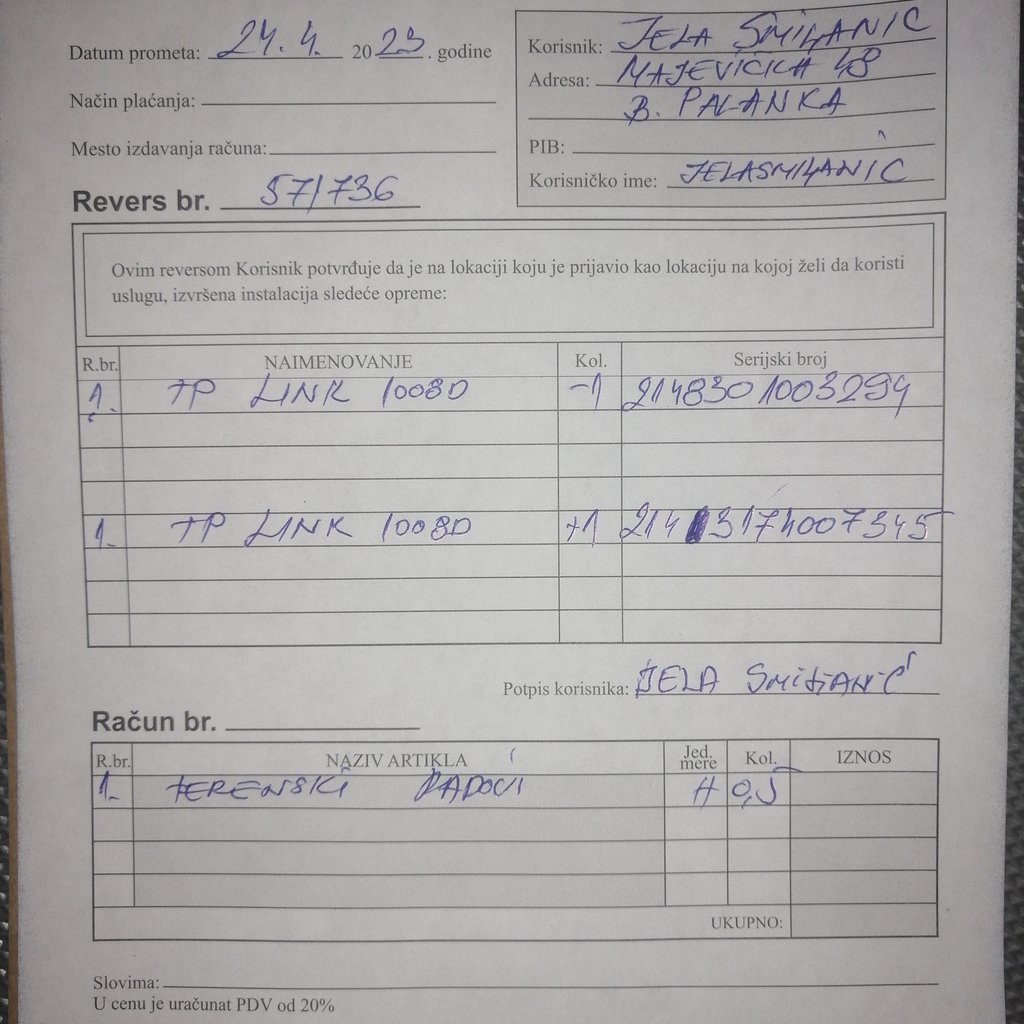 Datum prometa: 24. 4. 2023. godine
Način plaćanja:
Mesto izdavanja računa:
Revers br. 57/736
Korisnik: JELA SMILJANIC
Adresa: MAJEVIČKA 48
B. PALANKA
PIB:
Korisničko ime: JELASMILJANIĆ
Ovim reversom Korisnik potvrđuje da je na lokaciji koju je prijavio kao lokaciju na kojoj želi da koristi
uslugu, izvršena instalacija sledeće opreme:
R.br. NAIMENOVANJE Kol. Serijski broj
1. TP LINK 1008D -1 2148301003294
1. TP LINK 1008D +1 2143174007345
Potpis korisnika: JELA SMILJANIĆ
Račun br.
R.br. NAZIV ARTIKLA Jed. mere Kol. IZNOS
1. TERENSKI RADOVI H 0,5
UKUPNO:
Slovima:
U cenu je uračunat PDV od 20%